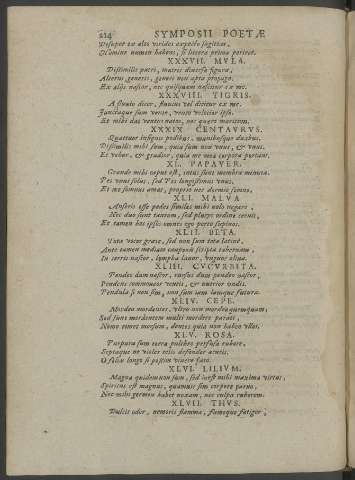 224 SYMPOSII POETÆ
Vesper ex alto virides expecto sagittas,
Nomine numen habens, si littera prima periret.
XXXVII. MVLA.
Dissimilis patri, matris diversa figura,
Alterius generis, generi non apta propago.
Ex aliis nascor, nec quisquam nascitur ex me.
XXXVIII. TIGRIS.
A fluvio dicor, fluvius vel dicitur ex me.
Junctaque sum vento, vento velocior ipso.
Et mihi dat ventus natos, nec quæro maritum.
XXXIX. CENTAVRVS.
Quattuor insignis pedibus, manibusque duabus.
Dissimilis mihi sum, quia sum non unus, & unus.
Et vehor, & gradior, quia me mea corpora portant.
XL. PAPAVER.
Grande mihi caput est, intus sunt membra minuta.
Pes unus solus, sed pes longissimus unus.
Et me somnus amat, proprio nec dormio somno.
XLI. MALVA
Anseris esse pedes similes mihi nolo negare;
Nec duo sunt tantum, sed plures ordine cernis,
Et tamen hos ipsos omnes ego porto supinos.
XLII. BETA.
Tota vocor græce, sed non sum tota latine,
Ante tamen mediam cauponis scripta tabernam,
In terris nascor, lympha lavor, unguor oliva.
XLIII. CVCVRBITA.
Pendeo dum nascor, rursus dum pendeo nascor,
Pendens commoveor ventis, & nutrior undis.
Pendula si non sim, non sum iam iamque futura.
XLIV. CEPE.
Mordeo mordentes, ultro non mordeo quemquam,
Sed sunt mordentem multi mordere parati,
Nemo timet morsum, dentes quia non habeo ullos.
XLV. ROSA.
Purpura sum terra pulchro perfusa rubore,
Septaque ne violer telis defendor acutis.
O felix longo si possim vivere fato.
XLVI. LILIVM.
Magna quidem non sum, sed inest mihi maxima virtus,
Spiritus est magnus, quamvis sim corpore parvo,
Nec mihi germen habet noxam, nec culpa ruborem.
XLVII. THVS.
Dulcis odor, nemoris flamma, fumoque fatigor,